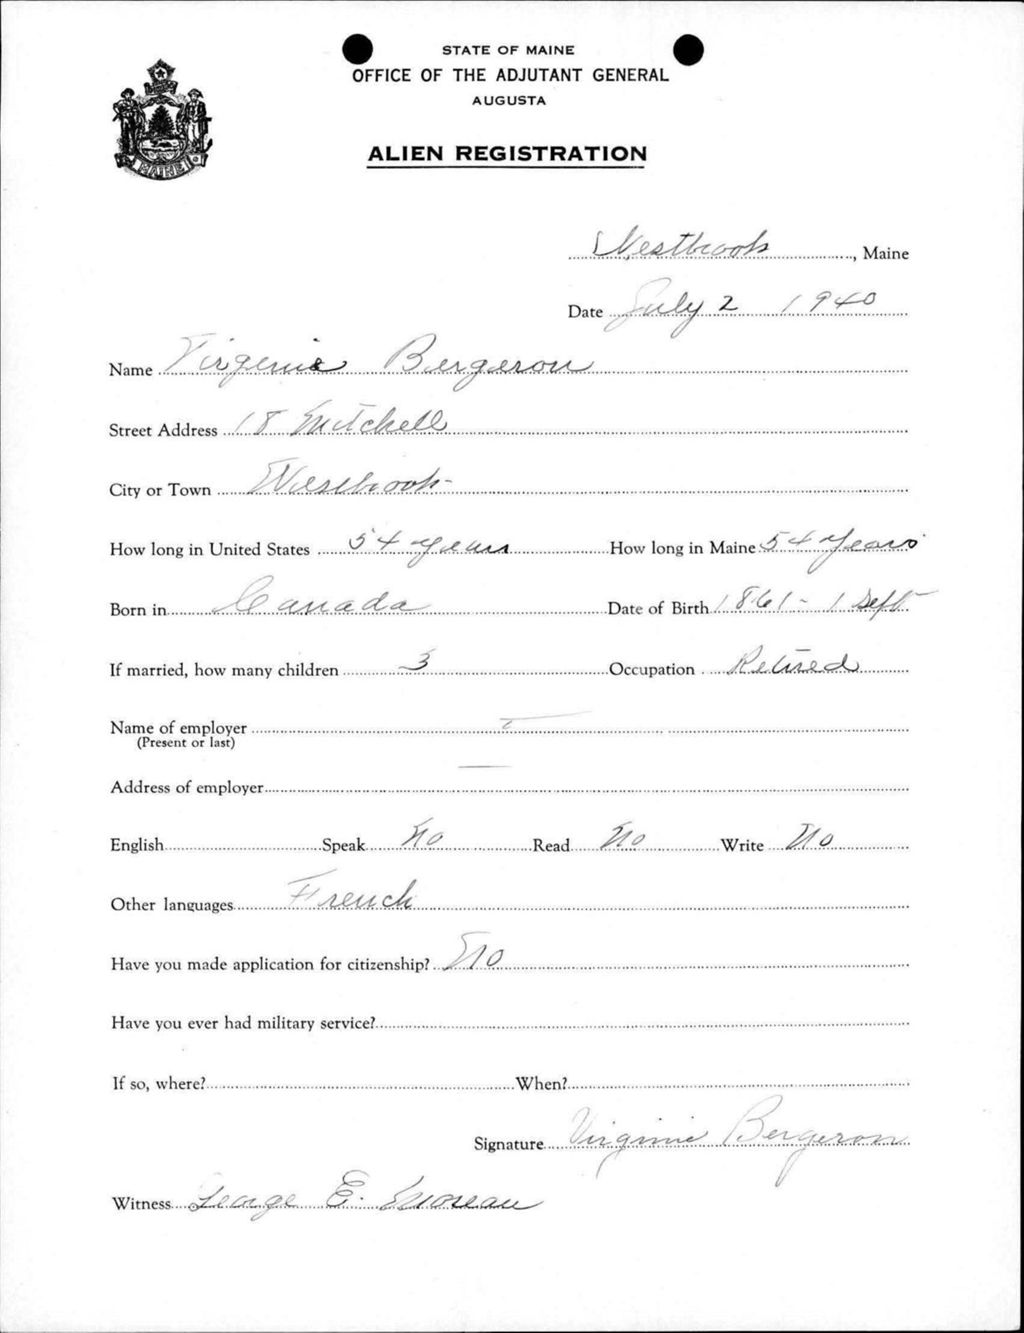 STATE OF MAINE
OFFICE OF THE ADJUTANT GENERAL
AUGUSTA
MAINE
ALIEN REGISTRATION
Westbrook, Maine
Date July 2 1940
Name Virginie Bergeron
Street Address 18 Mitchell
City or Town Westbrook
How long in United States 54 years How long in Maine 54 Years
Born in Canada Date of Birth 1861 - 1 Sept
If married, how many children 3 Occupation Retired
Name of employer
(Present or last)
Address of employer
English Speak No Read No Write No
Other languages French
Have you made application for citizenship? No
Have you ever had military service?
If so, where? When?
Signature Virginie Bergeron
Witness George E. Moreau